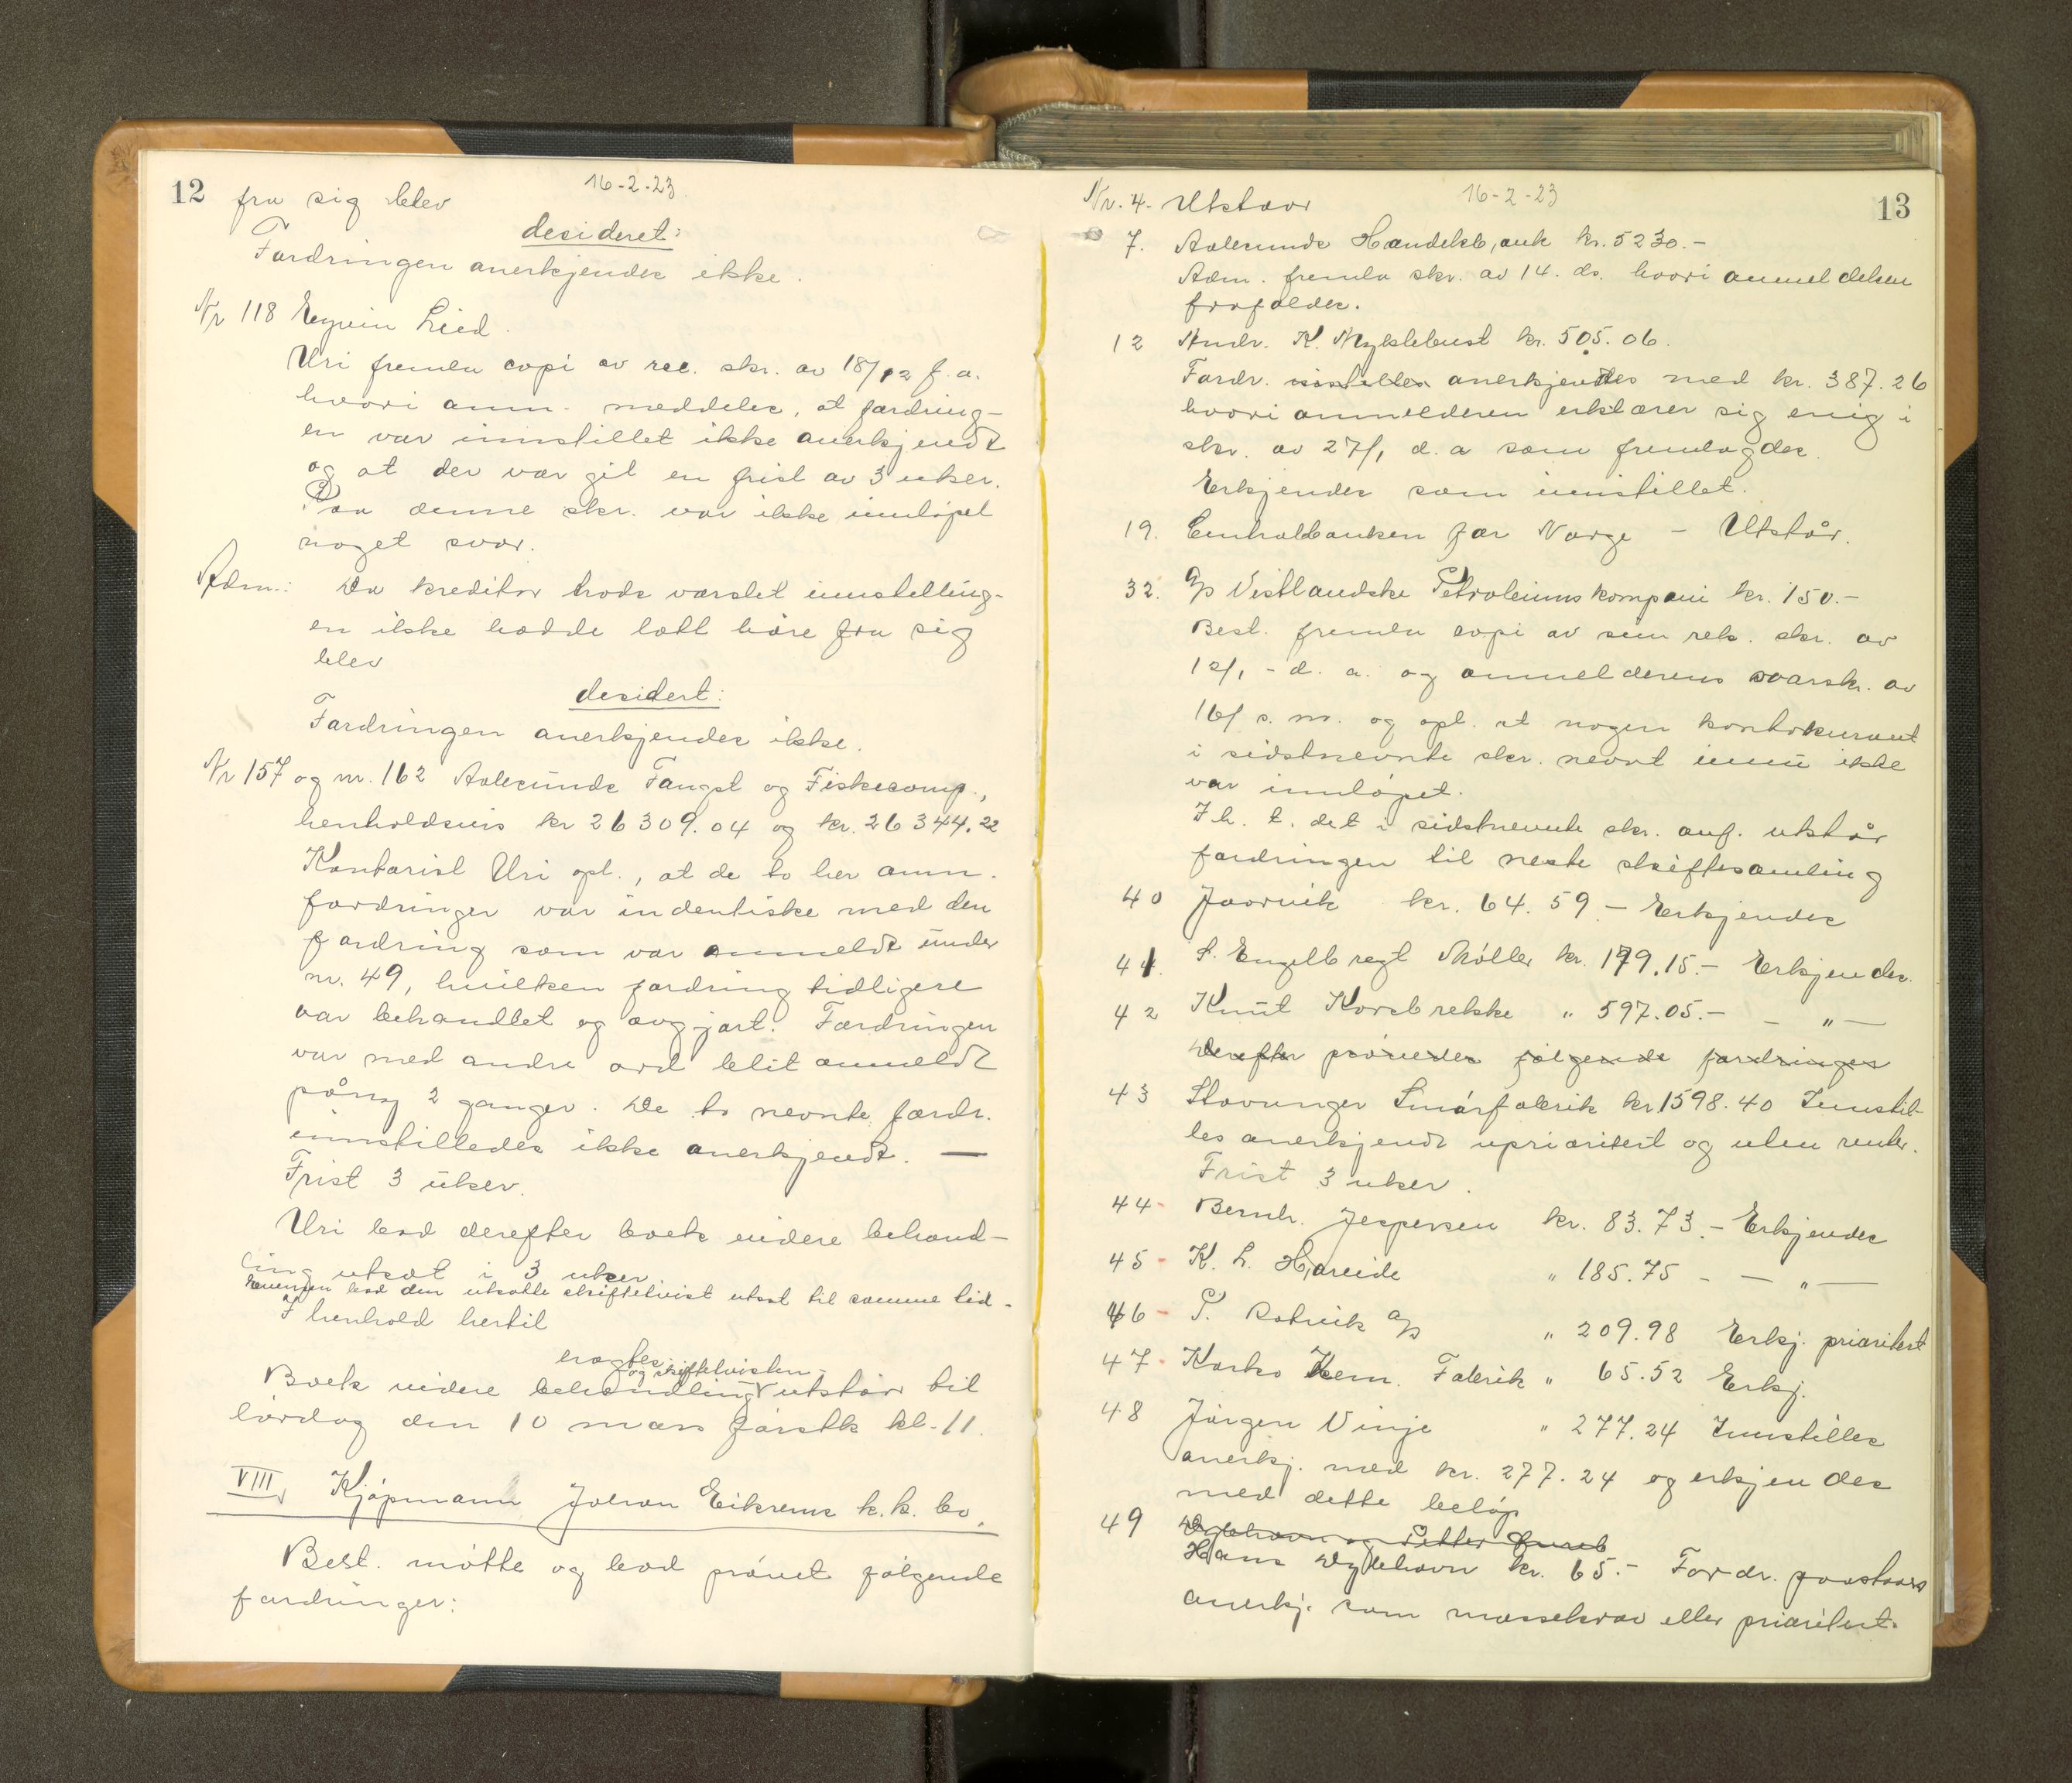 12 fra sig blev 16-2-23.
desideret:
Fordringen anerkjendes ikke.
Nr 118 Eyvin Lied.
Uri fremla copi av rec. skr. av 18/12 f. a.
hvori anm. meddeles, at fordring-
en var innstillet ikke anerkjendt
og at der var git en frist av 3 uker.
Paa denne skr. var ikke innløpet
noget svar.
Adm.: Da kreditor trods varslet innstelling-
en ikke hadde latt høre fra sig
blev
desidert:
Fordringen anerkjendes ikke.
Nr 157 og nr. 162 Aalesunds Fangst og Fiskecomp.,
henholdsvis kr 26309.04 og kr. 26344.22
Kontorist Uri opl., at de to her anm.
fordringer var indentiske med den
fordring som var anmeldt under
nr. 49, hvilken fordring tidligere
var behandlet og avgjort. Fordringen
var med andre ord blit anmeldt
påny 2 ganger. De to nevnte fordr.
innstilledes ikke anerkjendt. —
Frist 3 uker.
Uri bad derefter boets videre behand-
ling utsat i 3 uker
bad den utsatte skiftetvist utsat til samme tid.
I henhold hertil
eragtes:
og skiftetvisten
Boets videre behandling utstår til
lørdag den 10 mars førstk kl. 11.
VIII, Kjøpmann Johan Eikrems k.k. bo.
Best. møtte og bad prøvet følgende
fordringer:
Nr. 4. Utstaar 16-2-23 13
7. Aalesunds Handelsbank kr. 5230.-
Adm. fremla skr. av 14. ds. hvori anmeldelsen
frafaldes.
12 Andr. K. Myklebust kr. 505.06.
Fordr. innstilles anerkjendes med kr. 387.26
hvori anmelderen erklærer sig enig i
skr. av 27/1 d. a som fremlagdes.
Erkjendes som innstillet.
19. Centralbanken for Norge - Utstår.
32. A/S Vestlandske Petroleumskompani kr. 150.-
Best. fremla copi av sin rek. skr. av
12/1 - d. a. og anmelderens svarskr. av
16/ s. m. og opl. at nogen kontokurant
i sidstnevnte skr. nevnt ennu ikke
var innløpet.
I h. t. det i sidstnevnte skr. anf. utstår
fordringen til neste skiftesamling
40 Jaarvik kr. 64.59 - Erkjendes
41. S. Engelbregt Møller kr. 179.15.- Erkjendes.
42 Knut Korsbrekke " 597.05.- - " -
Derefter prøvedes følgende fordringer
43 Stavanger Smørfabrik kr 1598.40 Innstil-
les anerkjendt uprioritert og uten renter.
Frist 3 uker.
44 - Bernh. Jespersen kr. 83.73.- Erkjendes
45 - K. L. Hareide " 185.75 - - " -
46 - P. Rotvik A/S " 209.98 Erkj. prioritert
47 - Karko Kem. Fabrik " 65.52 Erkj.
48 Jørgen Vinje " 277.24 Innstilles
anerkj. med kr. 277.24 og erkjendes
med dette beløp
49 og Petter
Hans kr. 65.- Fordr. paastaaes
anerkj. som massekrav eller prioritert.